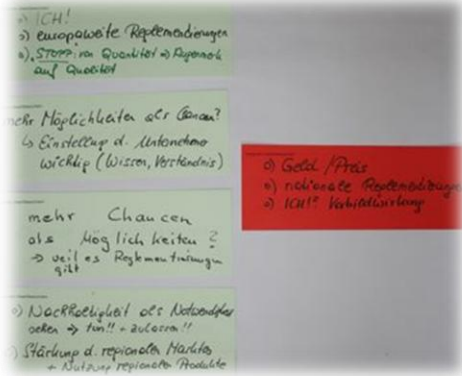 o) ICH!
o) europaweite Reglementierungen
o) "STOPP" von Quantität → Augenmerk
auf Qualität
mehr Möglichkeiten als Chancen?
↳ Einstellung d. Unternehmens
wichtig (Wissen, Verständnis)
mehr Chancen
als Möglichkeiten?
→ weil es Reglementierungen
gibt
o) Nachhaltigkeit als Notwendigkeit
sehen → tun!! + zulassen!!
o) Stärkung d. regionalen Marktes
+ Nutzung regionaler Produkte
o) Geld / Preis
o) nationale Reglementierungen
o) ICH!? Vorbildwirkung